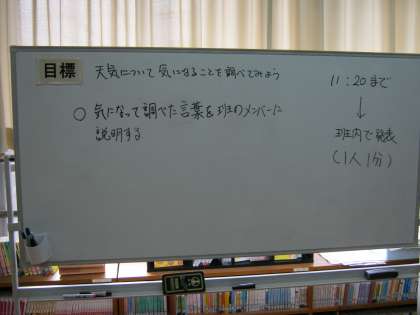 目標
天気について気になることを調べてみよう
○気になって調べた言葉を班のメンバーに
説明する
11:20まで
↓
班内で発表
(1人1分)